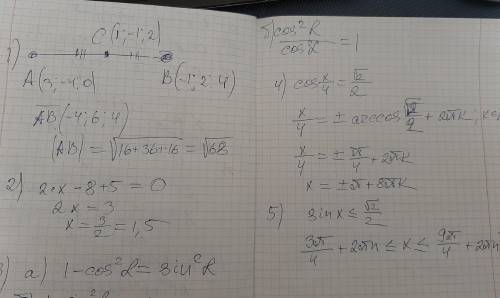 1) C(1;-1;2)
A(3;-4;0) B(-1;2;4)
AB(-4;6;4)
|AB| = √16+36+16 = √68
2) 2·x-8+5=0
2x=3
x=3/2=1,5
3) а) 1-cos²α=sin²α
б) cos²α/cos²α=1
4) cos x/4 = √2/2
x/4 = ± arccos √2/2 + 2πk;
x/4 = ± π/4 + 2πk
x = ± π + 8πk
5) sin x ≤ √2/2
3π/4 + 2πn ≤ x ≤ 9π/4 + 2πn